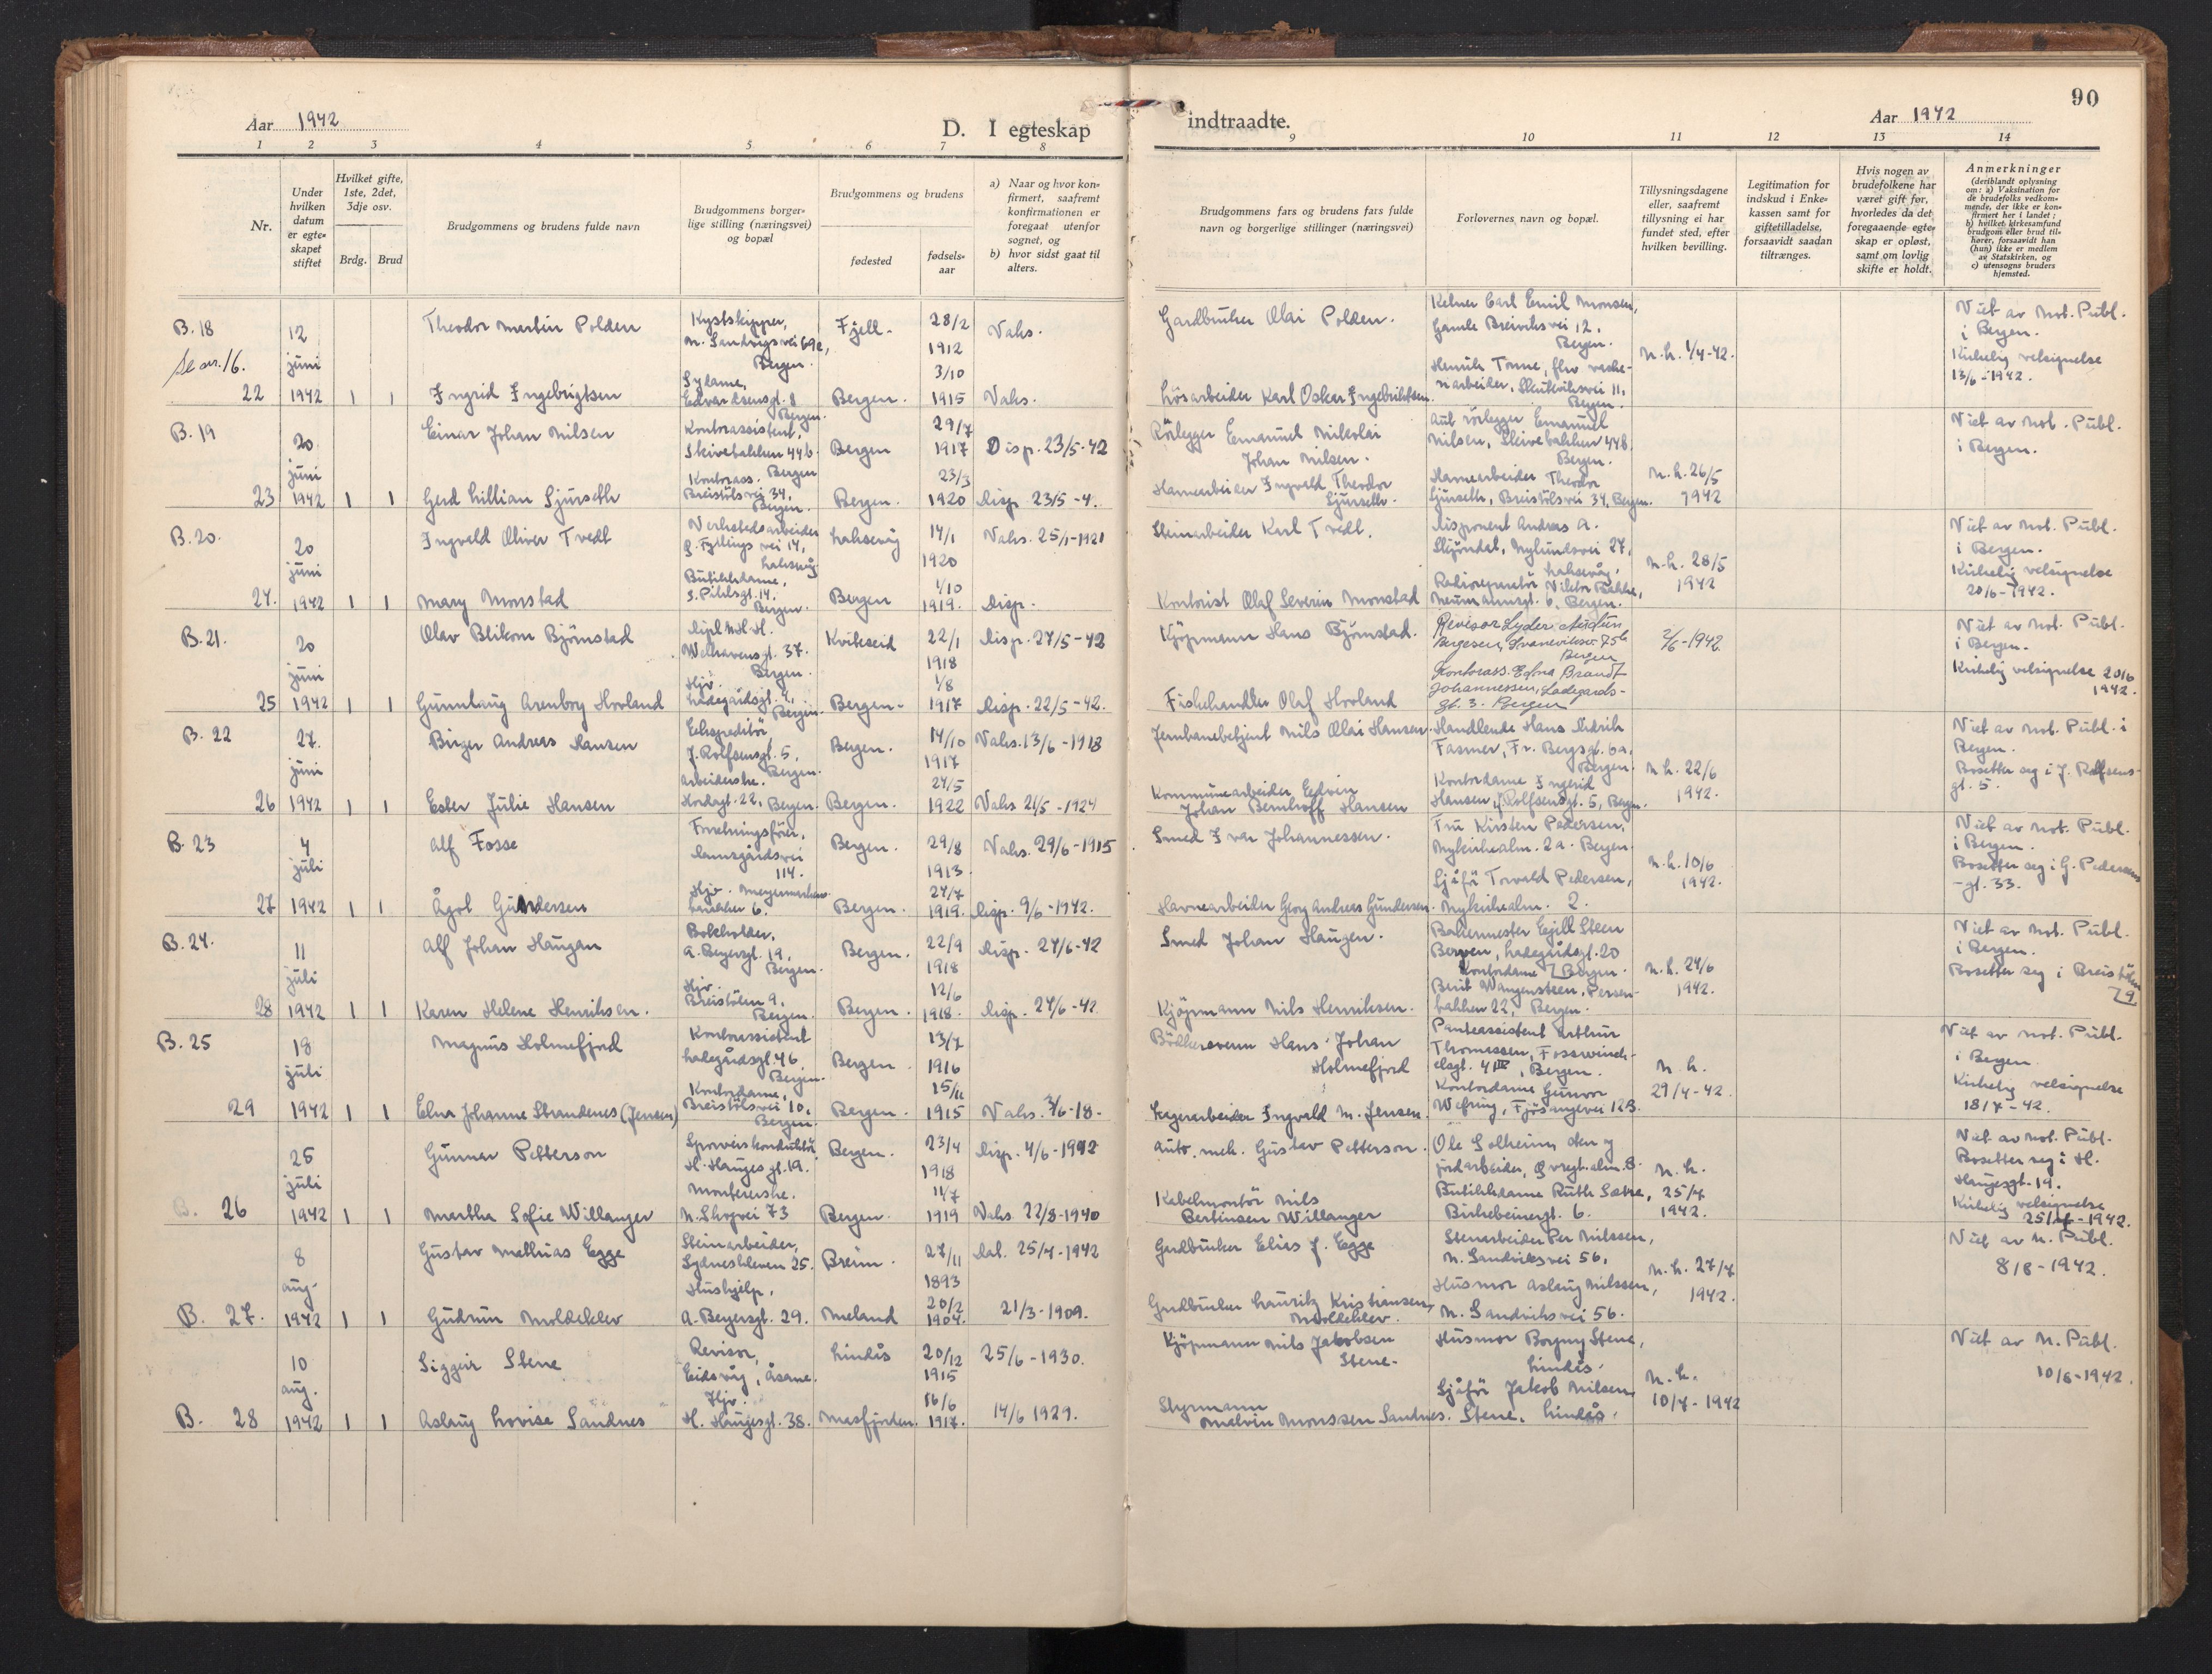 Aar 1942
D. I egteskap
indtraadte.
Aar 1942
90
1 2 3 4 5 6 7 8
9 10 11 12 13 14
Nr.
Under hvilken datum er egteskapet stiftet
Hvilket gifte, 1ste, 2det, 3dje osv.
Brdg. Brud
Brudgommens og brudens fulde navn
Brudgommens borgerlige stilling (næringsvei) og bopæl
Brudgommens og brudens
fødested
fødselsaar
a) Naar og hvor konfirmert, saafremt konfirmationen er foregaat utenfor sognet, og
b) hvor sidst gaat til alters.
Brudgommens fars og brudens fars fulde navn og borgerlige stillinger (næringsvei)
Forlovernes navn og bopæl.
Tillysningsdagene eller, saafremt tillysning ei har fundet sted, efter hvilken bevilling.
Legitimation for indskud i Enkekassen samt for giftetilladelse, forsaavidt saadan tiltrænges.
Hvis nogen av brudefolkene har været gift før, hvorledes da det foregaaende egteskap er opløst, samt om lovlig skifte er holdt.
Anmerkninger
(deriblandt oplysning om: a) Vaksination for de brudefolks vedkommende, der ikke er konfirmert her i landet; b) hvilket kirkesamfund brudgom eller brud tilhører, forsaavidt han (hun) ikke er medlem av Statskirken, og c) utensogns bruders hjemsted.
B. 18 12 juni 1942
22 1 1
Theodor Martin Polden
Kystskipper, n. Sandvigsvei 69e, Bergen.
Fjell. 28/2 1912 Vaks.
Gardbruker Olai Polden.
Kelner Carl Emil Monsen, Gamle Breiviksvei 12, Bergen.
Ingrid Ingebrigtsen
Sydame, Edvardsensgt. 8 Bergen.
Bergen. 3/10 1915 Vaks.
Løsarbeider Karl Oskar Ingebriktsen.
Henrik Tonne, Skuteviksvei 11, Bergen.
n.h. 1/4-42.
Viet av Not. Publ. i Bergen.
Kirkelig velsignelse 13/6-1942.
B. 19 20 juni 1942
23 1 1
Einar Johan Nilsen
Kontorassistent, Skivebakken 44b. Bergen
Bergen 29/7 1917 Disp. 23/5-42
Rørlegger Emanuel Nikolai Johan Nilsen.
Aut rørlegger Emanuel Nilsen, Skivebakken 44B. Bergen.
Gerd Lillian Sjurseth
Kontorass. Breistølsvei 34, Bergen.
Bergen. 23/3 1920 Disp. 23/5-4.
Havnearbeider Ingvald Theodor Sjurseth.
Havnearbeider Theodor Sjurseth, Breistølsvei 34, Bergen.
n.h. 26/5 1942
Viet av Not. Publ. i Bergen.
B. 20. 20 juni 1942
24. 1 1
Ingvald Oliver Tvedt
Verkstedsarbeider G. Fyllings vei 14, Laksevåg
Laksevåg 14/1 1920 Vaks. 25/1-1921
Steinarbeider Karl Tvedt.
Disponent Andreas A. Skjøndal, Nylundsvei 27, Laksevåg.
Mary Monstad
Butikkdame, S. Pihlsgt. 14, Bergen.
Bergen 1/10 1919. Disp.
Kontorist Olaf Severin Monstad
Radioreparatør Viktor Bakke, Neumannsgt. 6, Bergen.
n.h. 28/5 1942
Viet av Not. Publ. i Bergen.
Kirkelig velsignelse 20/6-1942.
B. 21. 20 juni 1942
25 1 1
Olav Blikom Bjørnstad
Dipl. N.H.H. Welhavensgt. 37. Bergen.
Kvitseid 22/1 1918 Disp. 27/5-42
Kjøpmann Hans Bjørnstad.
Revisor Lyder Audun Bergesen, Svaneviksv. 75b Bergen
Gunnlaug Arenborg Hovland
Hjv. Ladegårdsgt. 2, Bergen.
Bergen. 1/8 1917 Disp. 22/5-42.
Fiskehandler Olaf Hovland
Kontorass. Edna Brandt Johannessen, Ladegårdsgt. 3. Bergen
2/6-1942
Viet av Not. Publ. i Bergen.
Kirkelig velsignelse 20/6 1942.
B. 22 27. juni 1942
26 1 1
Birger Andreas Hansen
Ekspeditør, J. Rolfsensgt. 5, Bergen.
Bergen. 14/10 1917 Vaks. 13/6-1918
Jernbanebetjent Nils Olai Hansen.
Handlende Hans Didrik Fasmer, Fr. Bergsgt. 6a, Bergen.
Ester Julie Hansen
Arbeiderske. Hordagt. 22, Bergen.
Bergen. 24/5 1922 Vaks 21/5-1924
Kommunearbeider Edvin Johan Bernhoff Hansen
Kontordame Ingerid Hansen, J. Rolfsensgt. 5, Bergen.
n.h. 22/6 1942.
Viet av Not. Publ. i Bergen.
Bosetter seg i J. Rolfsensgt. 5.
B. 23 4 juli 1942
27 1 1
Alf Fosse
Forretningsfører, Damsgårdsvei 114.
Bergen. 29/8 1913. Vaks. 29/6-1915
Smed Ivar Johannessen.
Fru Kirsten Pedersen, Nykirkealm. 2a. Bergen
Ågot Gundersen
Hjv. bakken 6.
Bergen. 24/7 1919. Disp. 9/6-1942.
Havnearbeider Georg Andreas Gundersen.
Sjåfør Torvald Pedersen, Nykirkealm. 2.
n.h. 10/6 1942.
Viet av Not. Publ. i Bergen.
Bosetter seg i G. Pedersens-gt. 33.
B. 24. 11 juli 1942
28 1 1
Alf Johan Haugan
Bokholder, A. Beyersgt. 19, Bergen.
Bergen. 22/9 1918 Disp. 24/6-42
Smed Johan Haugen.
Bakermester Egill Steen Berven, Ladegårdsgt. 20 Bergen.
Karen Helene Henriksen.
Hjv. Breistølen 9, Bergen.
Bergen. 12/6 1918. Disp. 24/6-42
Kjøpmann Nils Henriksen.
Kontordame Berit Wangensteen, Persenbakken 22, Bergen.
n.h. 24/6 1942.
Viet av Not. Publ. i Bergen.
Bosetter seg i Breistølen 9
B. 25 18 juli 1942
29 1 1
Magnus Holmefjord
Kontorassistent Ladegårdsgt. 46, Bergen.
Bergen. 13/7 1916
Bødkersvenn Hans Johan Holmefjord
Panteassistent Arthur Thomassen, Fosswinckelsgt. 41 III, Bergen.
Elna Johanne Strandenes (Jensen)
Kontordame, Breistølsvei 10, Bergen.
Bergen. 15/11 1915 Vaks. 3/6-18-
Lagerarbeider Ingvald M. Jensen.
Kontordame Gunvor Wefring, Fjøsangervei 12B.
n.h. 29/4-42.
Viet av Not. Publ. i Bergen.
Kirkelig velsignelse 18/7-42.
25 juli 1942
B. 26 1 1
Gunnar Petterson
Sporveiskonduktør H. Haugesgt. 19.
Bergen. 23/4 1918 Disp. 4/6-1942
Auto. mek. Gustav Petterson.
Ole Solheim, jordarbeider,
Martha Sofie Willanger
Montererske. N. Skogvei 73
Bergen. 11/7 1919 Vaks. 22/8-1940
Kabelmontør Nils Bertinsen Willanger
Butikkdame Ruth Sætre, Birkebeinergt. 6.
n.h. 25/4 1942.
Viet av Not. Publ.
Bosetter seg i H. Haugesgt. 19.
Kirkelig velsignelse 25/7-1942.
8 aug. 1942
B. 27. 1 1
Gustav Mathias Egge
Steinarbeider, Sydneskleven 25.
Breim. 27/11 1893 Dal. 25/4-1942
Gardbruker Elias J. Egge
Stenarbeider Per Nilssen, N. Sandviksvei 56,
Gudrun Moldeklev
Hushjelp, A. Beyersgt. 29.
Meland 20/2 1904. 21/3-1909.
Gardbruker Lauritz Kristiansen Moldeklev.
Husmor Aslaug Nilssen, N. Sandviksvei 56.
n.h. 27/7 1942.
Viet av N. Publ. 8/8-1942.
10 aug. 1942
B. 28 1 1
Siggeir Stene
Revisor, Eidsvåg, Åsane.
Lindås 20/12 1915 25/6-1930.
Kjøpmann Nils Jakobsen Stene.
Husmor Borgny Stene, Lindås.
Aslaug Lovise Sandnes
Hjv. H. Haugesgt. 38.
Masfjorden. 16/6 1917. 14/6 1929.
Styrmann Melvin Monssen Sandnes.
Sjåfør Jakob Nilsen Stene, Lindås.
n.h. 10/7-1942
Viet av N. Publ. 10/8-1942.